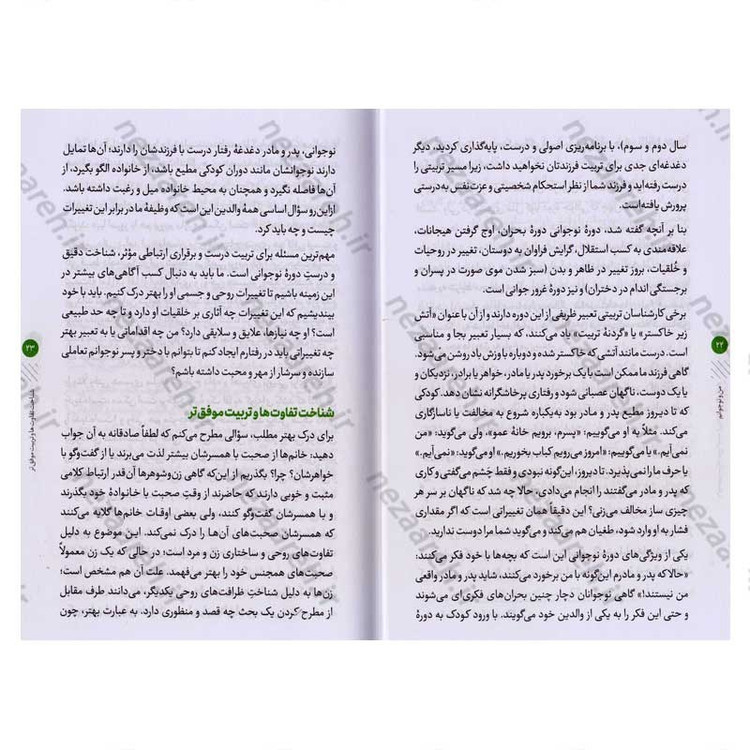 سال دوم و سوم)، با برنامه‌ریزی اصولی و درست، پایه‌گذاری کردید، دیگر
دغدغه‌ای جدی برای تربیت فرزندتان نخواهید داشت، زیرا مسیر تربیتی را
درست رفته‌اید و فرزند شما از نظر استحکام شخصیتی و عزت نفس به‌درستی
پرورش یافته است.
بنا بر آنچه گفته شد، دورهٔ نوجوانی دورهٔ بحران، اوج گرفتن هیجانات،
علاقه‌مندی به کسب استقلال، گرایش فراوان به دوستان، تغییر در روحیات
و خُلقیات، بروز تغییر در ظاهر و بدن (سبز شدن موی صورت در پسران و
برجستگی اندام در دختران) و نیز دورهٔ غرور جوانی است.
برخی کارشناسان تربیتی تعبیر ظریفی از این دوره دارند و از آن با عنوان «آتش
زیر خاکستر» یا «گردنهٔ تربیت» یاد می‌کنند، که بسیار تعبیر بجا و مناسبی
است. درست مانند آتشی که خاکستر شده و دوباره با وزش باد روشن می‌شود.
گاهی فرزند ما ممکن است با یک برخورد پدر یا مادر، خواهر یا برادر، نزدیکان و
یا یک دوست، ناگهان عصبانی شود و رفتاری پرخاشگرانه نشان دهد. کودکی
که تا دیروز مطیع پدر و مادر بود به‌یکباره شروع به مخالفت یا ناسازگاری
می‌کند. مثلاً به او می‌گوییم: «پسرم، برویم خانهٔ عمو»، ولی می‌گوید: «من
نمی‌آیم.» یا می‌گوییم: «امروز می‌رویم کباب بخوریم.» او می‌گوید: «نمی‌آیم.»
یا حرف ما را نمی‌پذیرد. تا دیروز، این‌گونه نبودی و فقط چَشم می‌گفتی و کاری
که پدر و مادر می‌گفتند را انجام می‌دادی، حالا چه شد که ناگهان بر سر هر
چیزی ساز مخالف می‌زنی؟ این دقیقاً همان تغییراتی است که اگر مقداری
فشار به او وارد شود، طغیان هم می‌کند و می‌گوید شما مرا دوست ندارید.
یکی از ویژگی‌های دورهٔ نوجوانی این است که بچه‌ها با خود فکر می‌کنند:
«حالا که پدر و مادرم این‌گونه با من برخورد می‌کنند، شاید پدر و مادر واقعی
من نیستند!» گاهی نوجوانان دچار چنین بحران‌های فکری‌ای می‌شوند
و حتی این فکر را به یکی از والدین خود می‌گویند. با ورود کودک به دورهٔ
۲۲
من و نوجوانم
نوجوانی، پدر و مادر دغدغهٔ رفتار درست با فرزندشان را دارند؛ آن‌ها تمایل
دارند نوجوانشان مانند دوران کودکی مطیع باشد، از خانواده الگو بگیرد، از
آن‌ها فاصله نگیرد و همچنان به محیط خانواده میل و رغبت داشته باشد.
ازاین‌رو سؤال اساسی همهٔ والدین این است که وظیفهٔ ما در برابر این تغییرات
چیست و چه باید کرد.
مهم‌ترین مسئله برای تربیت درست و برقراری ارتباطی مؤثر، شناخت دقیق
و درستِ دورهٔ نوجوانی است. ما باید به دنبال کسب آگاهی‌های بیشتر در
این زمینه باشیم تا تغییرات روحی و جسمی او را بهتر درک کنیم. باید با خود
بیندیشیم که این تغییرات چه آثاری بر خلقیات او دارد و تا چه حد طبیعی
است؟ او چه نیازها، علایق و سلایقی دارد؟ من چه اقداماتی یا به تعبیر بهتر
چه تغییراتی باید در رفتارم ایجاد کنم تا بتوانم با دختر و پسر نوجوانم تعاملی
سازنده و سرشار از مهر و محبت داشته باشم؟
شناخت تفاوت‌ها و تربیت موفق‌تر
برای درک بهتر مطلب، سؤالی مطرح می‌کنم که لطفاً صادقانه به آن جواب
دهید: خانم‌ها از صحبت با همسرشان بیشتر لذت می‌برند یا از گفت‌وگو با
خواهرشان؟ چرا؟ بگذریم از این‌که گاهی زن‌وشوهرها آن‌قدر ارتباط کلامی
مثبت و خوبی دارند که حاضرند از وقتِ صحبت با خانوادهٔ خود بگذرند
و با همسرشان گفت‌وگو کنند، ولی بعضی اوقات خانم‌ها گلایه می‌کنند
که همسرشان صحبت‌های آن‌ها را درک نمی‌کند. این موضوع به دلیل
تفاوت‌های روحی و ساختاری زن و مرد است؛ در حالی که یک زن معمولاً
صحبت‌های همجنس خود را بهتر می‌فهمد. علت آن هم مشخص است؛
زن‌ها به دلیل شناختِ ظرافت‌های روحی یکدیگر، می‌دانند طرف مقابل
از مطرح کردن یک بحث چه قصد و منظوری دارد. به عبارت بهتر، چون
۲۳
شناخت تفاوت‌ها و تربیت موفق‌تر
nezaareh.ir